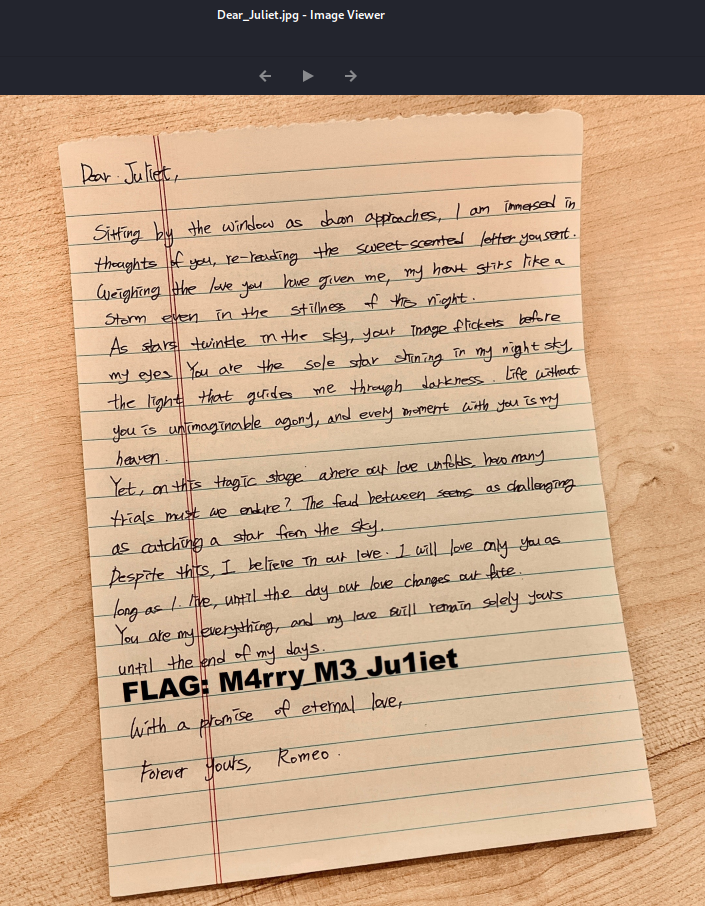 Dear_Juliet.jpg - Image Viewer
Dear Juliet,
Sitting by the window as dawn approaches, I am immersed in
thoughts of you, re-reading the sweet-scented letter you sent.
Weighing the love you have given me, my heart stirs like a
Storm even in the stillness of this night.
As stars twinkle in the sky, your image flickers before
my eyes You are the sole star shining in my night sky
the light that guides me through darkness. Life without
you is unimaginable agony, and every moment with you is my
heaven.
Yet, on this tragic stage where our love unfolds, how many
trials must we endure? The feud between seems as challenging
as catching a star from the sky.
Despite this, I believe in our love. I will love only you as
long as I live, until the day our love changes our fate.
You are my everything, and my love will remain solely yours
until the end of my days.
FLAG: M4rry_M3_Ju1iet
With a promise of eternal love,
Forever Yours, Romeo.